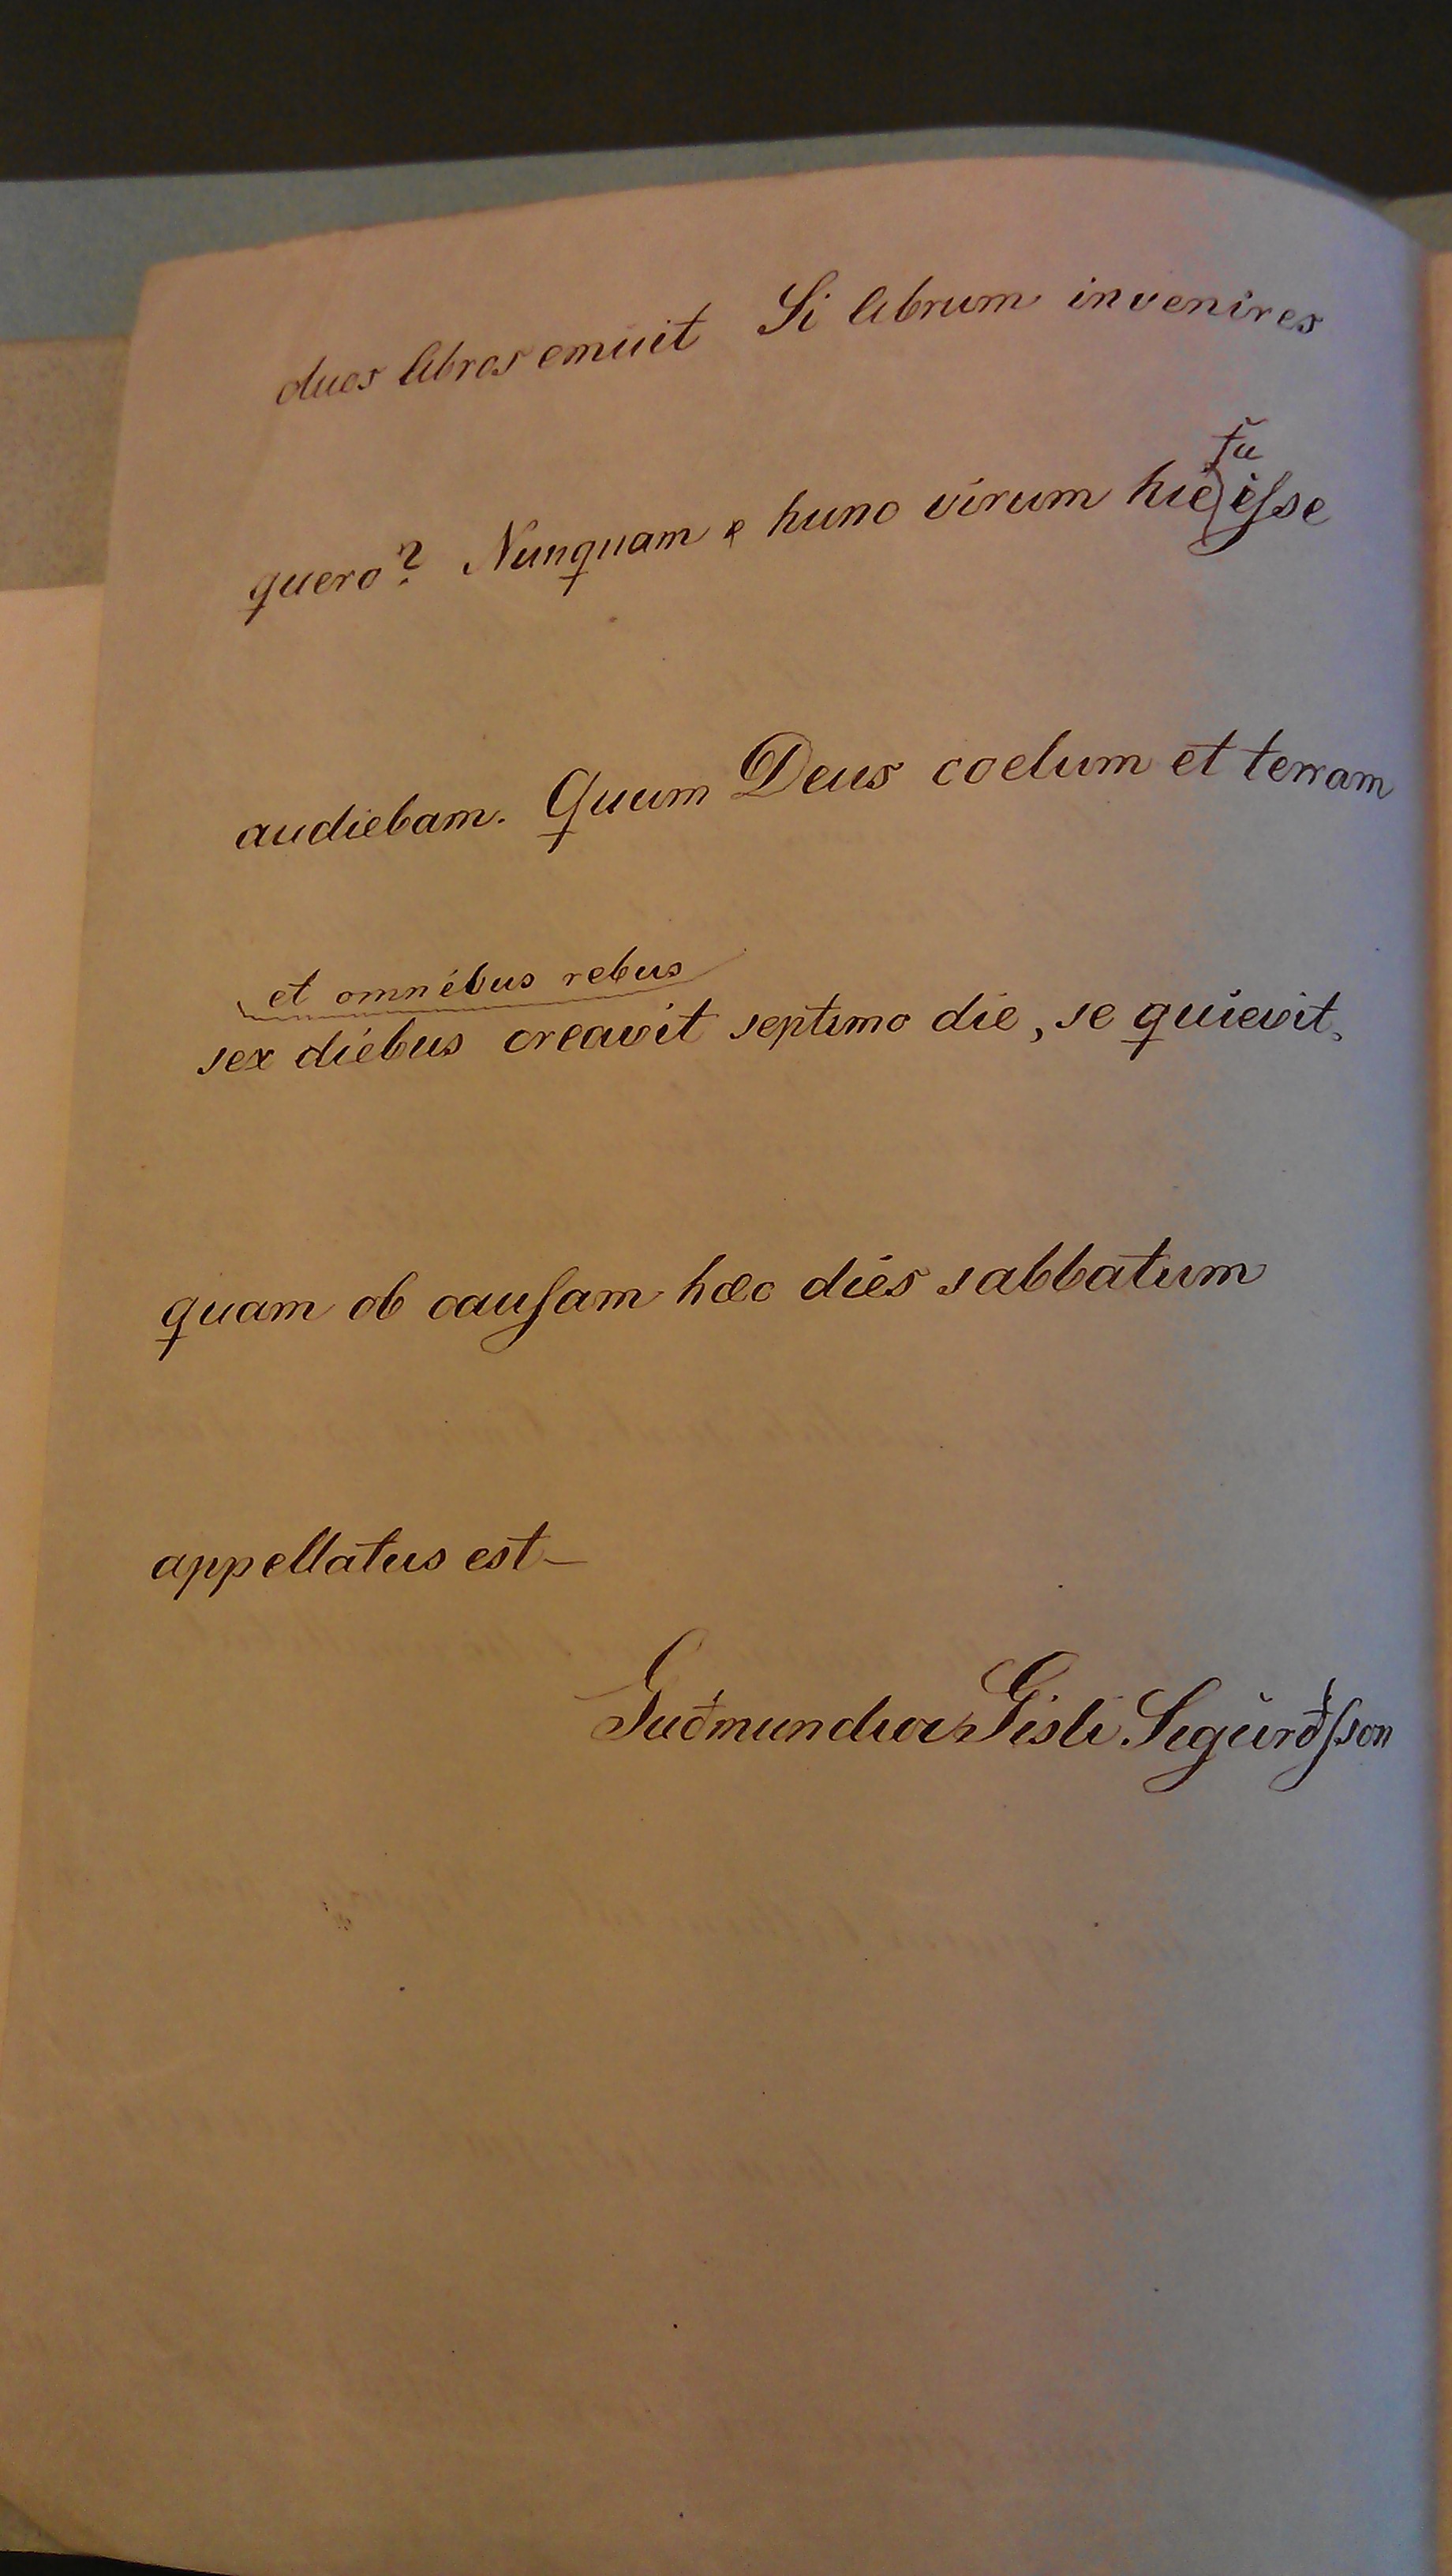 duos libros emuit Si librum invenires
quero? Nunquam e hunc virum hic fu esse
audiebam. Quum Deus coelum et terram
et omnibus rebus
sex diebus creavit septimo die, se quievit,
quam ob causam hæc dies sabbatum
appellatus est—
Guðmundur Gisli Sigurðsson